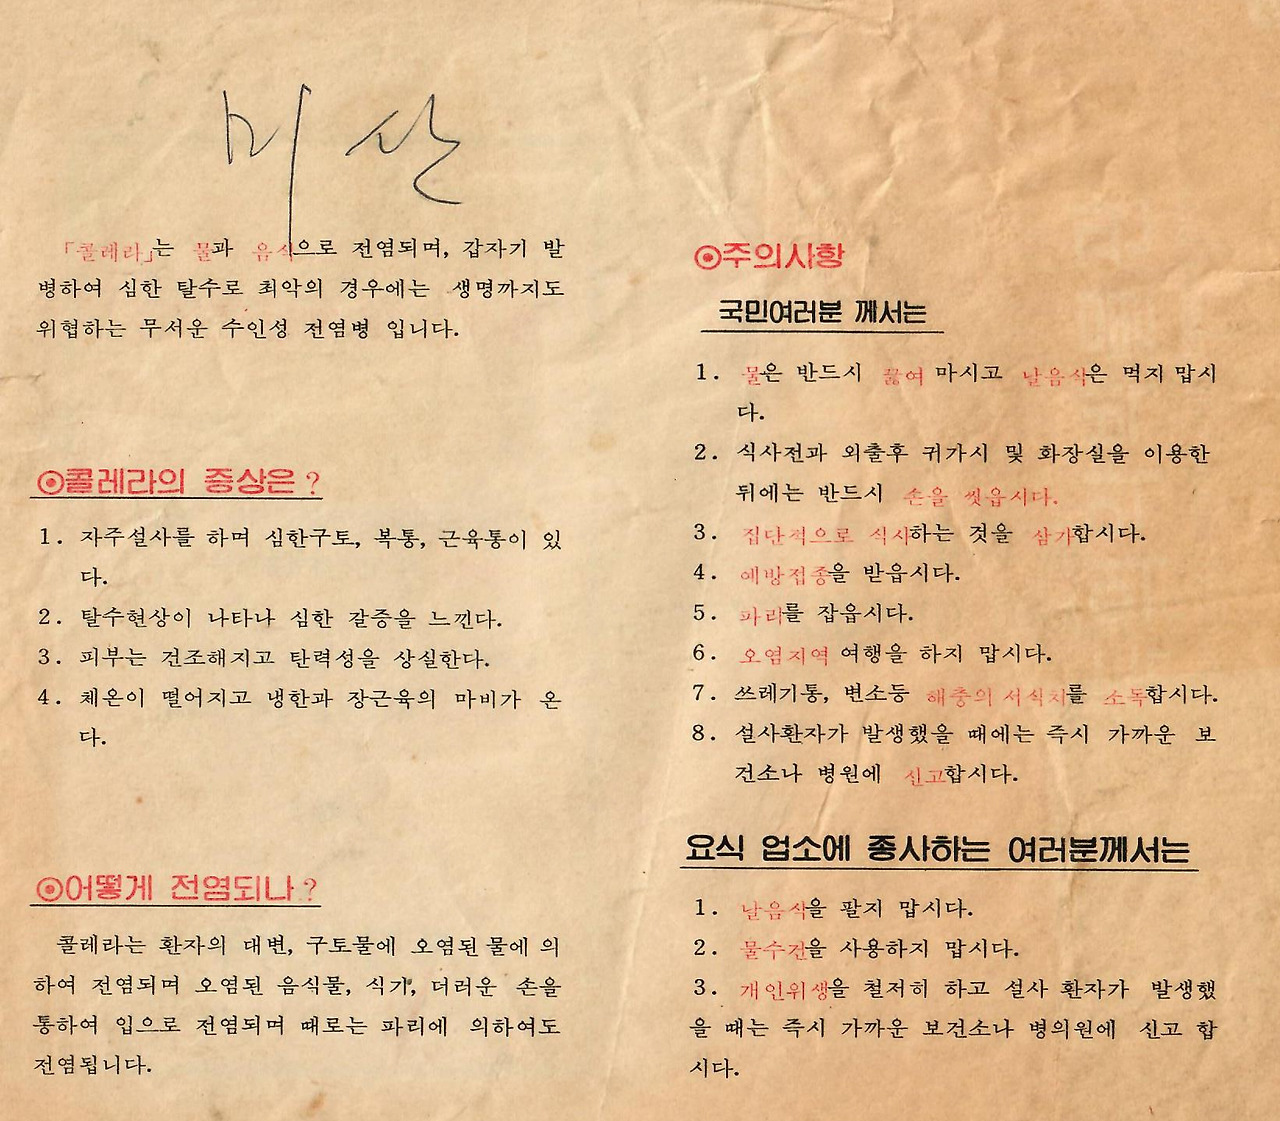 미산
「콜레라」는 물과 음식으로 전염되며, 갑자기 발
병하여 심한 탈수로 최악의 경우에는 생명까지도
위협하는 무서운 수인성 전염병 입니다.
⦿콜레라의 증상은?
1. 자주설사를 하며 심한구토, 복통, 근육통이 있
다.
2. 탈수현상이 나타나 심한 갈증을 느낀다.
3. 피부는 건조해지고 탄력성을 상실한다.
4. 체온이 떨어지고 냉한과 장근육의 마비가 온
다.
⦿어떻게 전염되나?
콜레라는 환자의 대변, 구토물에 오염된 물에 의
하여 전염되며 오염된 음식물, 식기, 더러운 손을
통하여 입으로 전염되며 때로는 파리에 의하여도
전염됩니다.
⦿주의사항
국민여러분 께서는
1. 물은 반드시 끓여 마시고 날음식은 먹지 맙시
다.
2. 식사전과 외출후 귀가시 및 화장실을 이용한
뒤에는 반드시 손을 씻읍시다.
3. 집단적으로 식사하는 것을 삼가합시다.
4. 예방접종을 받읍시다.
5. 파리를 잡읍시다.
6. 오염지역 여행을 하지 맙시다.
7. 쓰레기통, 변소등 해충의 서식처를 소독합시다.
8. 설사환자가 발생했을 때에는 즉시 가까운 보
건소나 병원에 신고합시다.
요식 업소에 종사하는 여러분께서는
1. 날음식을 팔지 맙시다.
2. 물수건을 사용하지 맙시다.
3. 개인위생을 철저히 하고 설사 환자가 발생했
을 때는 즉시 가까운 보건소나 병의원에 신고 합
시다.